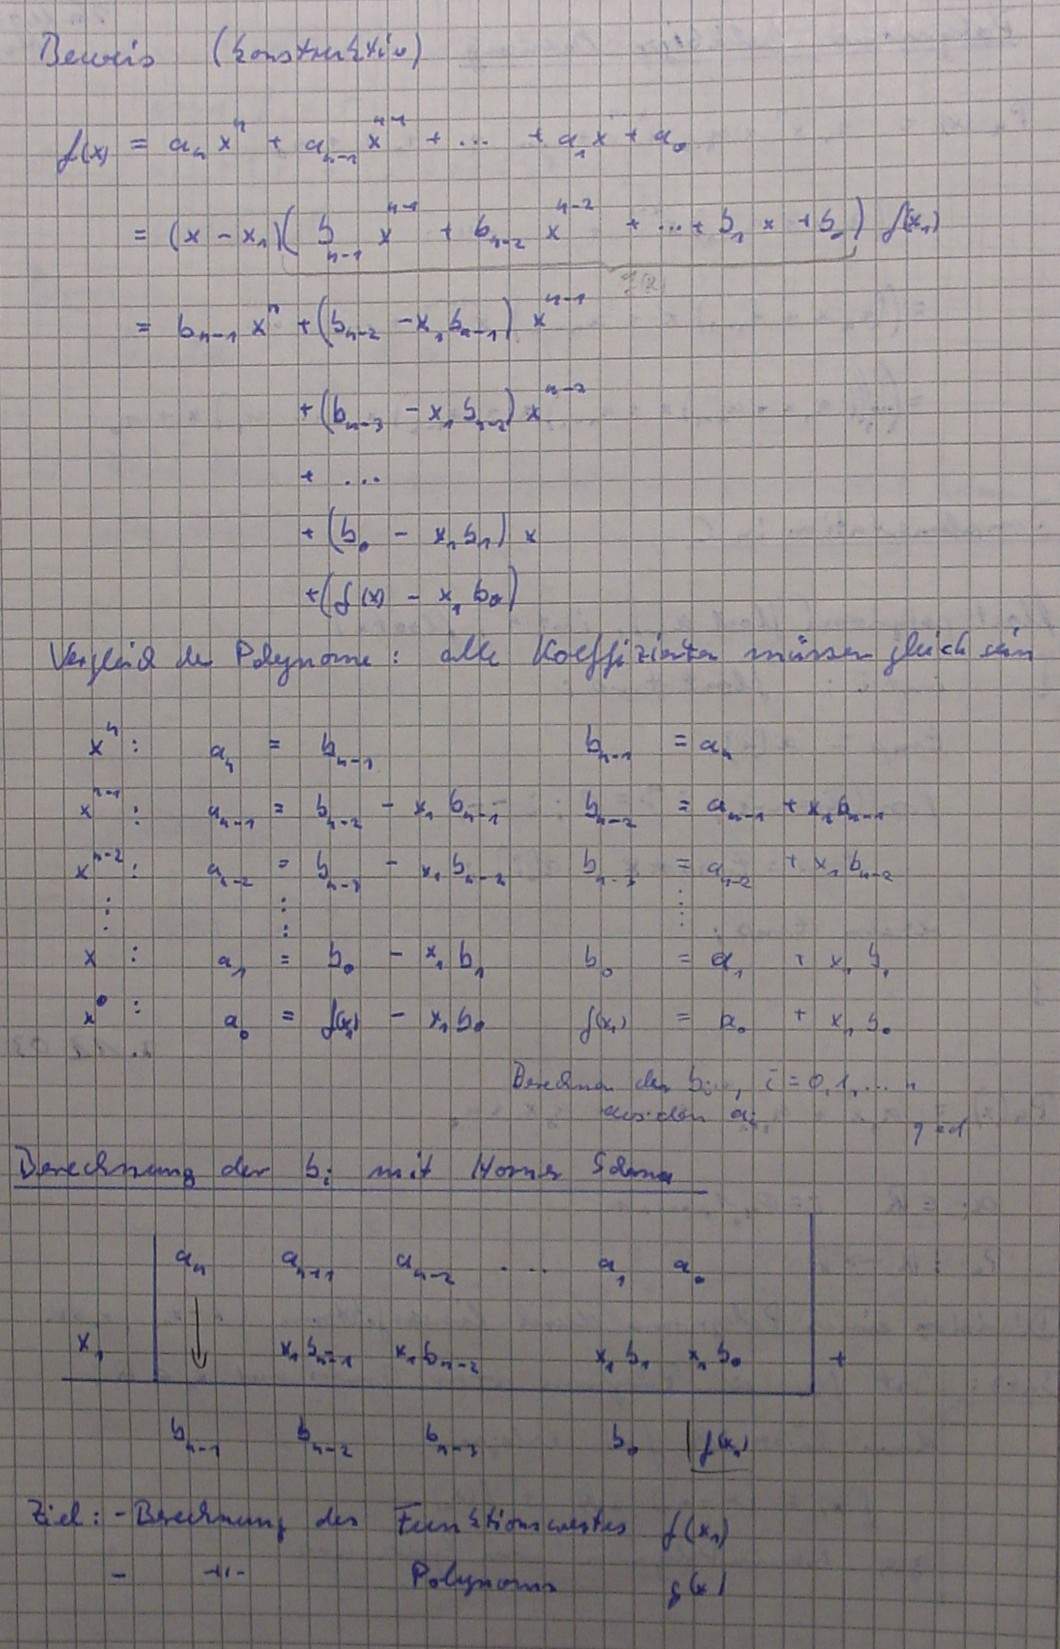 Beweis (konstruktiv)
f(x) = aₙ xⁿ + aₙ₋₁ xⁿ⁻¹ + ... + a₁ x + a₀
= (x - x₁)( bₙ₋₁ xⁿ⁻¹ + bₙ₋₂ xⁿ⁻² + ... + b₁ x + b₀ ) f(x₁)
g(x)
= bₙ₋₁ xⁿ + (bₙ₋₂ - x₁ bₙ₋₁) xⁿ⁻¹
+ (bₙ₋₃ - x₁ bₙ₋₂) xⁿ⁻²
+ ...
+ (b₀ - x₁ b₁) x
+ (f(x) - x₁ b₀)
Vergleich der Polynome: alle Koeffizienten müssen gleich sein
xⁿ : aₙ = bₙ₋₁ bₙ₋₁ = aₙ
xⁿ⁻¹ : aₙ₋₁ = bₙ₋₂ - x₁ bₙ₋₁ bₙ₋₂ = aₙ₋₁ + x₁ bₙ₋₁
xⁿ⁻² : aₙ₋₂ = bₙ₋₃ - x₁ bₙ₋₂ bₙ₋₃ = aₙ₋₂ + x₁ bₙ₋₂
⋮ ⋮ ⋮
x : a₁ = b₀ - x₁ b₁ b₀ = a₁ + x₁ b₁
x⁰ : a₀ = f(x₁) - x₁ b₀ f(x₁) = a₀ + x₁ b₀
Berechnen der bᵢ, i = 0, 1, ... n
aus den aᵢ
qed
Berechnung der bᵢ mit Horner Schema
aₙ aₙ₊₁ aₙ₋₂ ... a₁ a₀
x₁ ↓ x₁ bₙ₋₁ x₁ bₙ₋₂ x₁ b₁ x₁ b₀ +
bₙ₋₁ bₙ₋₂ bₙ₋₃ b₀ | f(x₁)
Ziel: - Berechnung des Funktionswertes f(x₁)
- -"- Polynoms g(x)